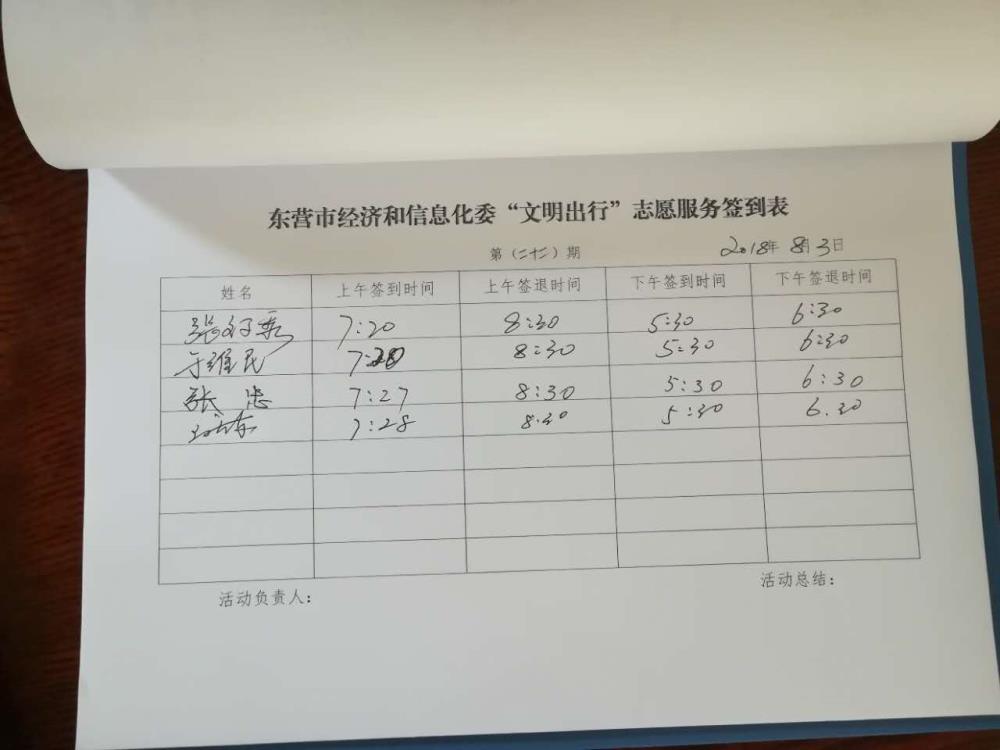 东营市经济和信息化委“文明出行”志愿服务签到表
第（二十二）期 2018年8月3日
姓名 上午签到时间 上午签退时间 下午签到时间 下午签退时间
7:20 8:30 5:30 6:30
于维民 7:20 8:30 5:30 6:30
张忠 7:27 8:30 5:30 6:30
7:28 8:30 5:30 6.30
活动负责人： 活动总结：